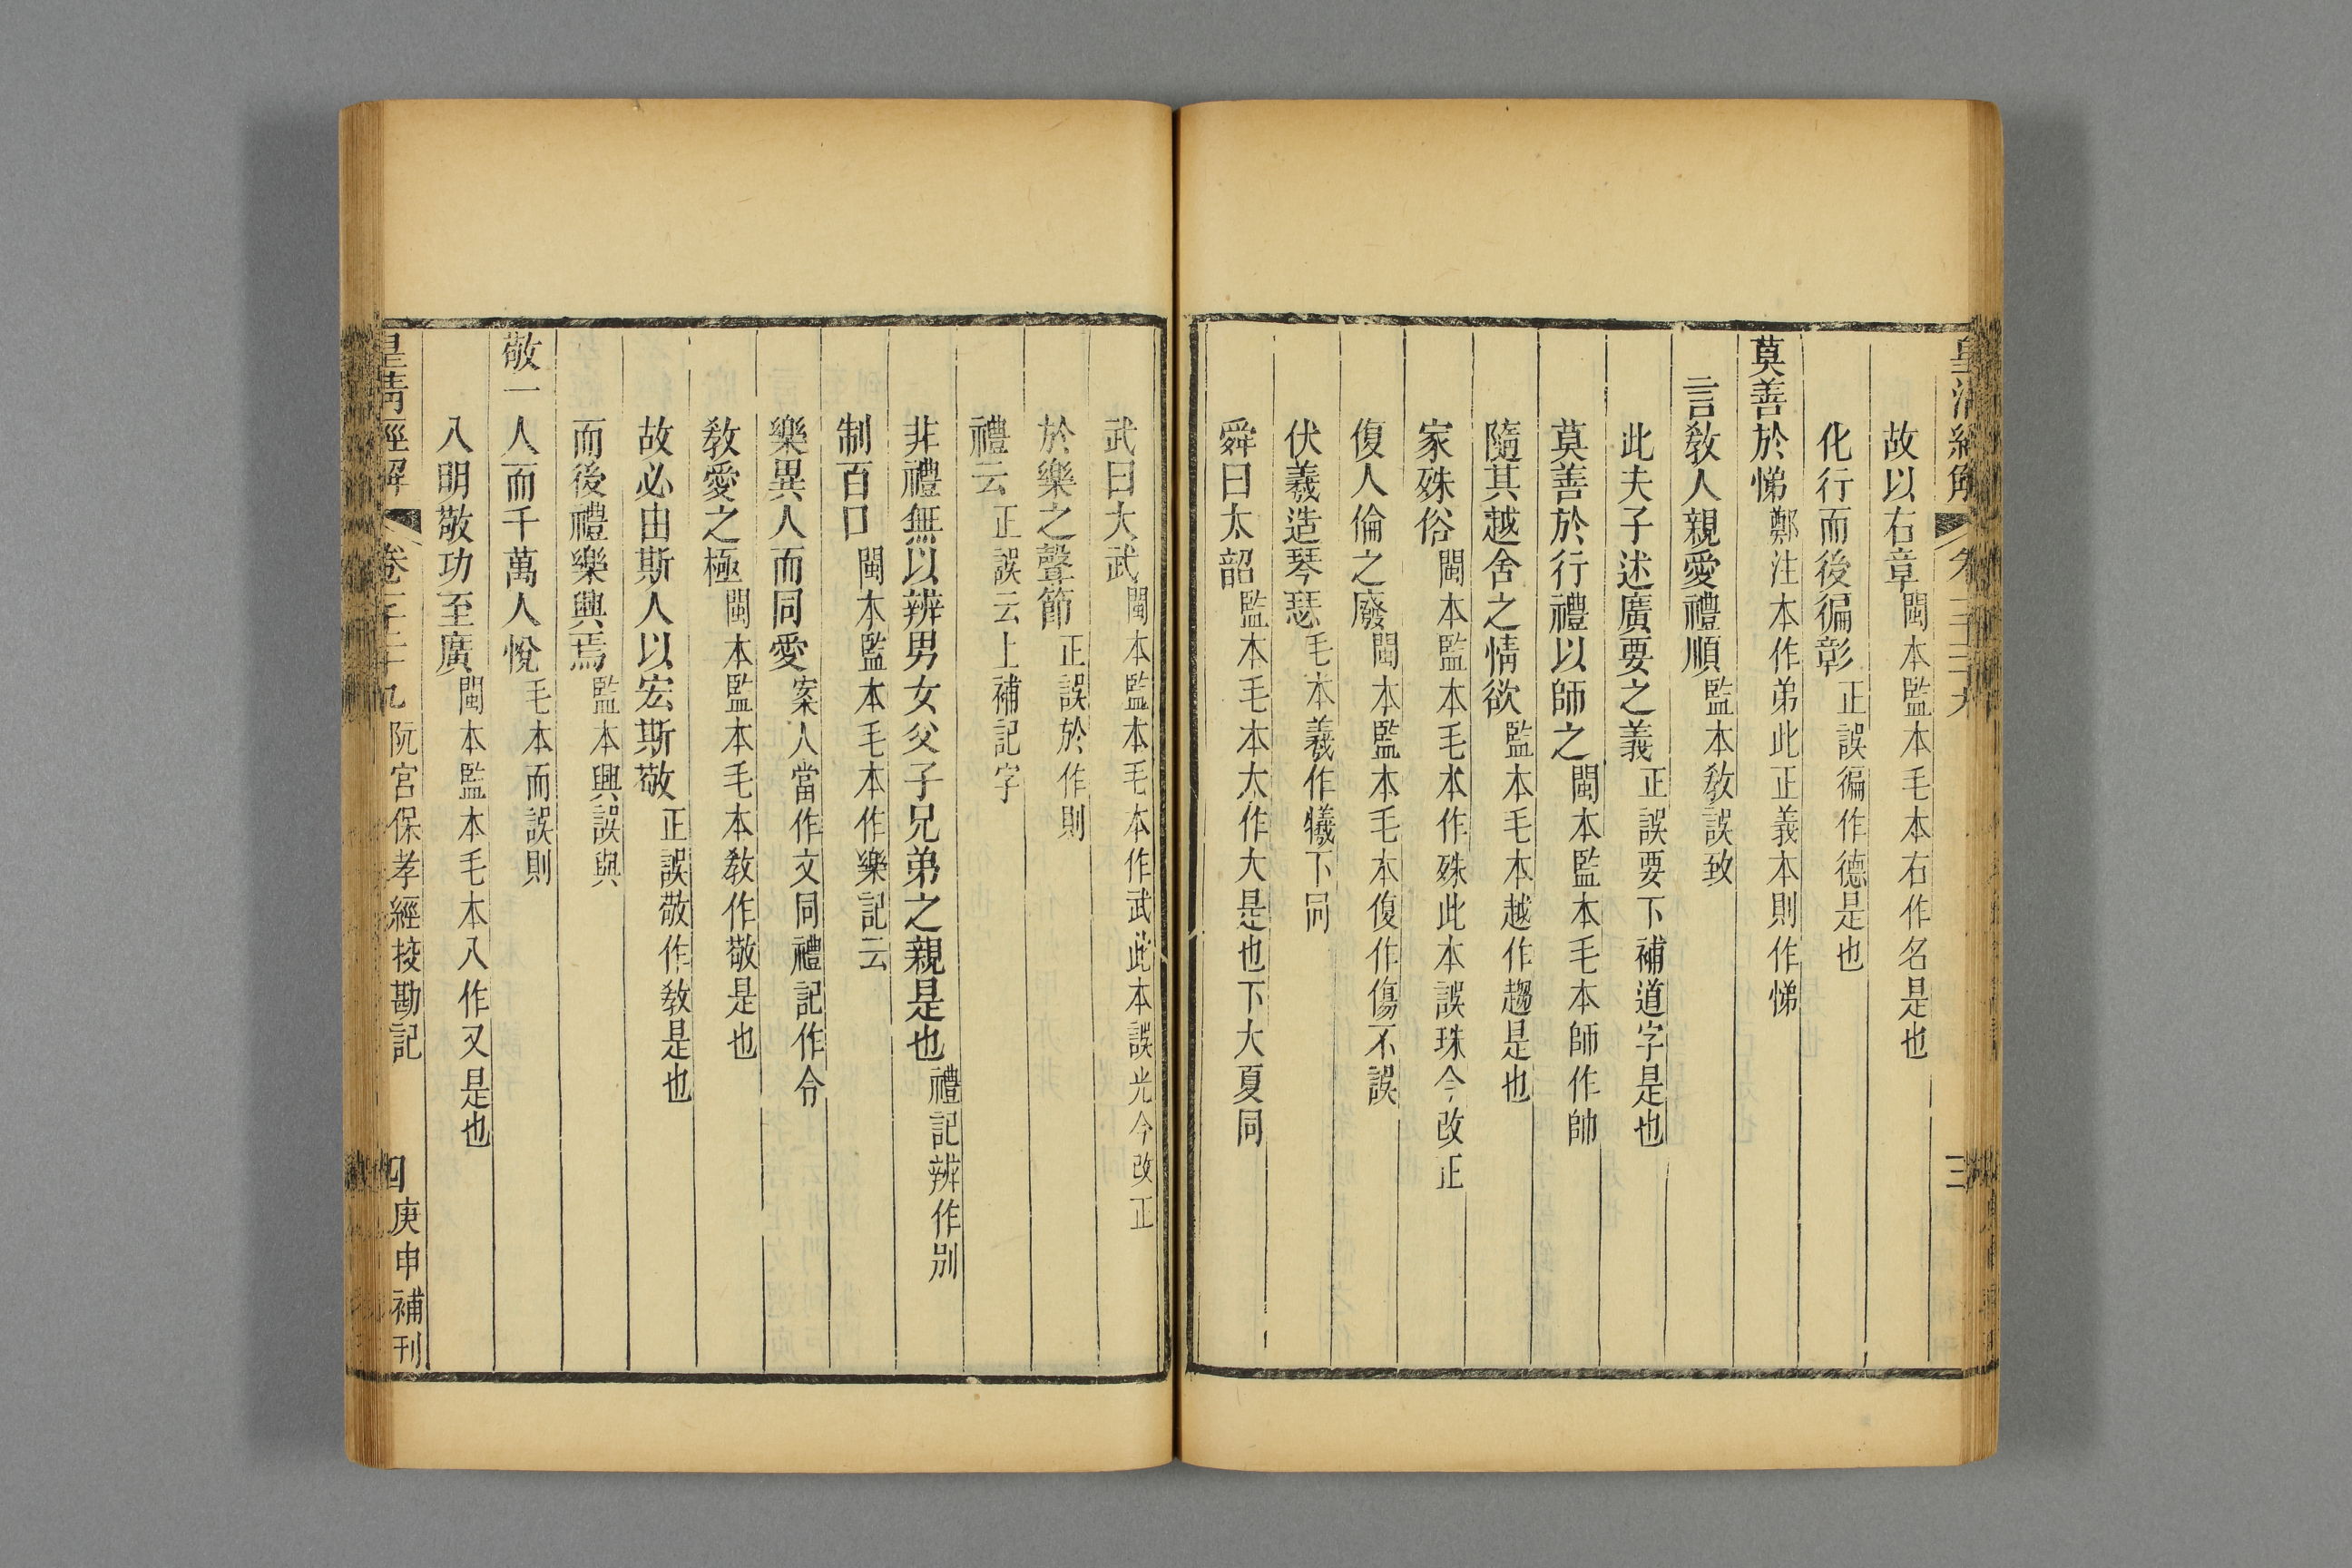 故以右章閩本監本毛本右作名是也
化行而後徧彰正誤徧作德是也
莫善於悌鄭注本作弟此正義本則作悌
言敎人親愛禮順監本敎誤致
此夫子述廣要之義正誤要下補道字是也
莫善於行禮以師之閩本監本毛本師作帥
隨其越舍之情欲監本毛本越作趨是也
家殊俗閩本監本毛本作殊此本誤珠今改正
復人倫之廢閩本監本毛本復作傷不誤
伏羲造琴瑟毛本羲作犧下同
舜曰太韶監本毛本太作大是也下大夏同
三
武曰大武閩本監本毛本作武此本誤光今改正
於樂之聲節正誤於作則
禮云正誤云上補記字
非禮無以辨男女父子兄弟之親是也禮記辨作別
制百口閩本監本毛本作樂記云
樂異人而同愛案人當作文同禮記作合
敎愛之極閩本監本毛本敎作敬是也
故必由斯人以宏斯敬正誤敬作敎是也
而後禮樂興焉監本興誤與
敬一人而千萬人悅毛本而誤則
八明敬功至廣閩本監本毛本八作又是也
皇淸經解 阮宮保孝經挍勘記 四 庚申補刊